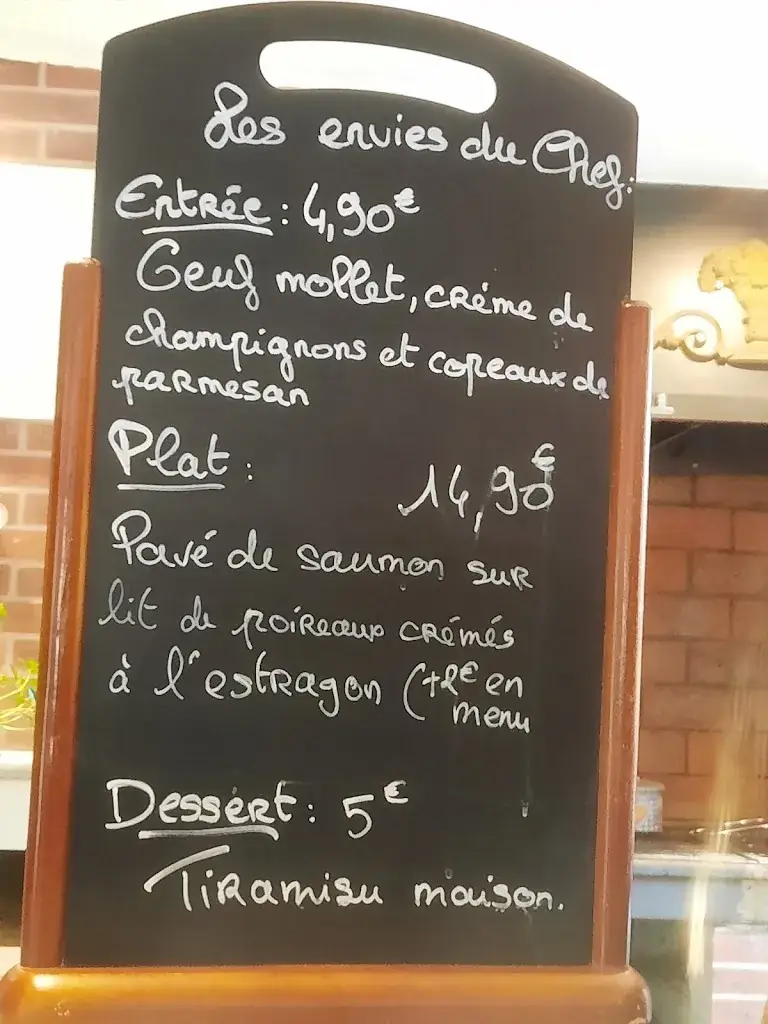 Les envies du Chef:
Entrée: 4,90€
Oeuf mollet, crème de
champignons et copeaux de
parmesan
Plat: 14,90€
Pavé de saumon sur
lit de poireaux crémés
à l'estragon (+2€ en
menu
Dessert: 5€
Tiramisu maison.